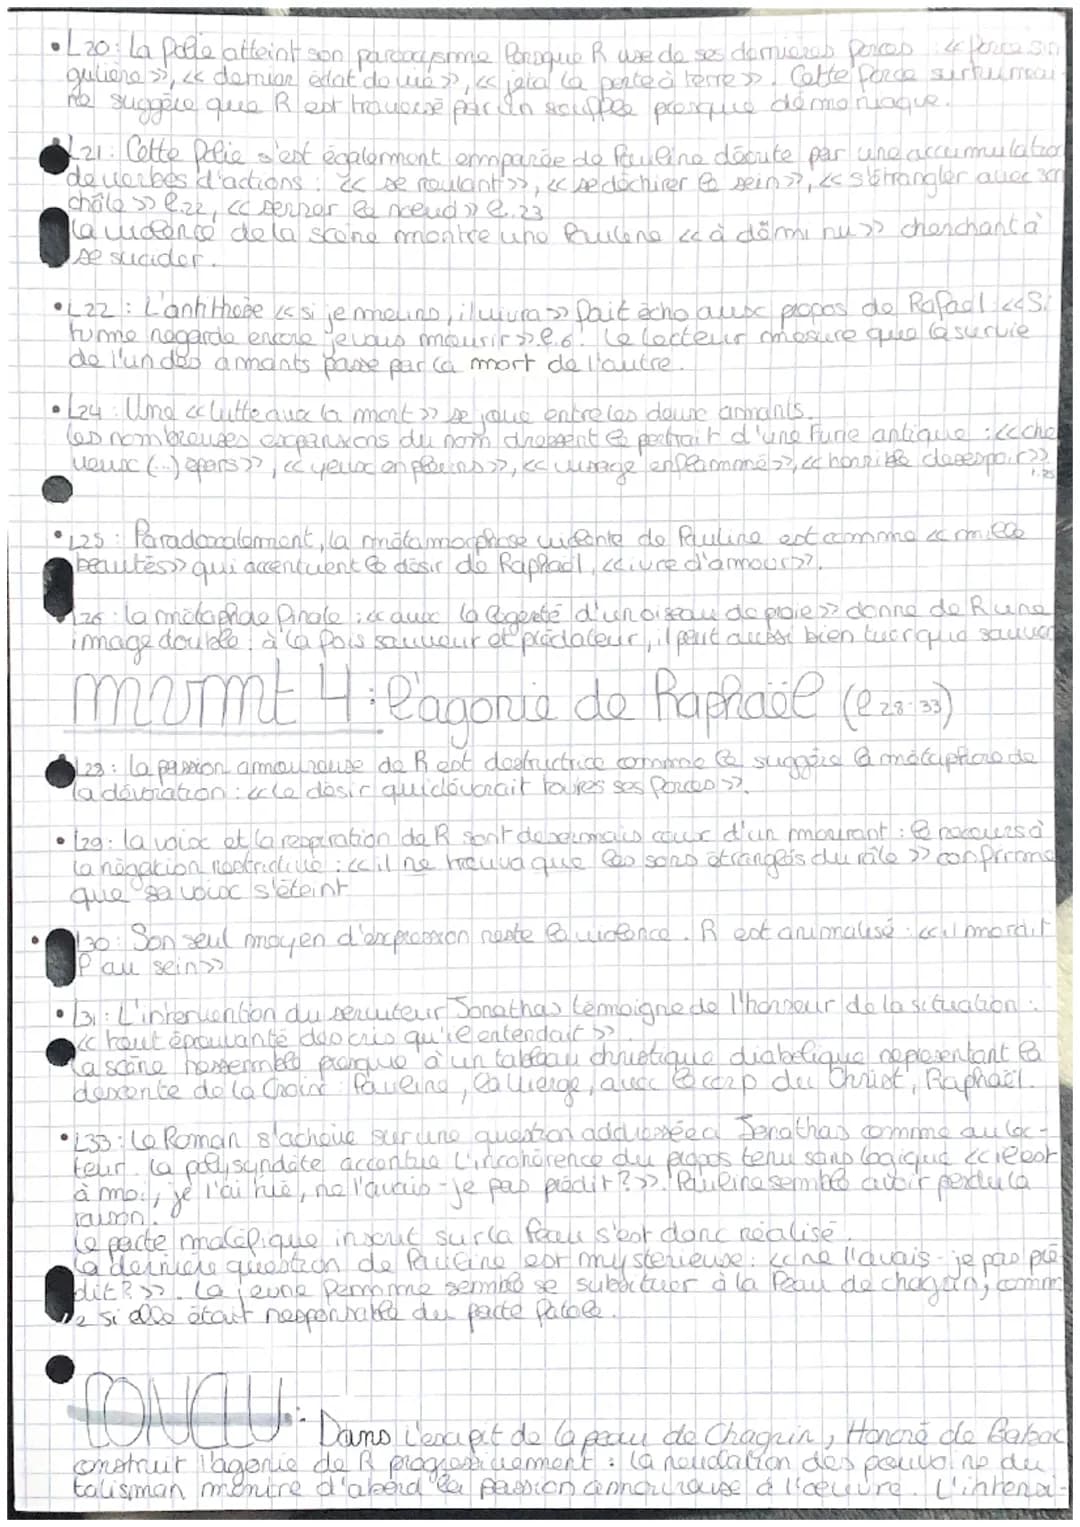 • L20 : La folie atteint son paroxysme lorsque R use de ses dernières forces : << force sin
gulière >>, << dernier éclat de vie >>, << jeta la porte à terre >>. Cette force surhumai
ne suggère que R est traversé par un souffle presque démoniaque.
L21 : Cette folie s'est également emparée de Pauline décrite par une accumulation
de verbes d'actions : << se roulant >>, << se déchirer le sein >>, << s'étrangler avec son
châle >> l.22, << serrer le nœud >> l.23
La violence de la scène montre une Pauline << à demi nu >> cherchant à
se suicider.
• L22 : L'antithèse << si je meurs, il vivra >> fait écho aux propos de Rafael : << Si
tu me regarde encore je vais mourir >> l.6. Le lecteur mesure que la survie
de l'un des amants passe par la mort de l'autre.
• L24 : Une << lutte avec la mort >> se joue entre les deux amants.
Les nombreuses expansions du nom dressent le portrait d'une Furie antique : << che
veux (...) épars >>, << yeux en pleurs >>, << visage enflammé >>, << horrible désespoir >>
l.25
• L25 : Paradoxalement, la métamorphose violente de Pauline est comme << mille
beautés >> qui accentuent le désir de Raphaël, << ivre d'amour >>.
L26 : la métaphore finale : << avec la légereté d'un oiseau de proie >> donne de R une
image double : à la fois sauveur et prédateur, il peut aussi bien tuer que sauver
mvmt 4 : l'agonie de Raphaël (l 28-33)
L28 : la passion amoureuse de R est destructrice comme le suggère la métaphore de
la dévoration : << le désir qui dévorait toutes ses forces >>.
• L29 : la voix et la respiration de R sont désormais ceux d'un mourant : le recours à
la négation restrictive : << il ne trouva que les sons étranglés du râle >> confirme
que sa voix s'éteint
• L30 : Son seul moyen d'expression reste la violence. R est animalisé : << il mordit
P au sein >>
• L31 : L'intervention du serviteur Jonathas témoigne de l'horreur de la situation :
<< tout épouvanté des cris qu'il entendait >>.
La scène ressemble presque à un tableau christique diabolique représentant la
descente de la Croix : Pauline, la vierge, avec le corp du Christ, Raphaël.
• L33 : Le Roman s'achève sur une question addressée à Jonathas comme au lec-
teur. La polysyndète accentue l'incohérence du propos tenu sans logique << il est
à moi, je l'ai tué, ne l'avais-je pas prédit ? >>. Pauline semble avoir perdu la
raison.
Le pacte maléfique inscrit sur la Peau s'est donc réalisé.
La dernière question de Pauline est mystérieuse : << ne l'avais-je pas pré-
dit ? >>. La jeune femme semble se substituer à la Peau de chagrin, comm
e si elle était responsable du pacte fatale.
CONCLU : Dans l'excipit de la peau de Chagrin, Honoré de Balzac
construit l'agonie de R progressivement : la révélation des pouvoirs du
talisman montre d'abord la passion amoureuse à l'œuvre. L'intensi-